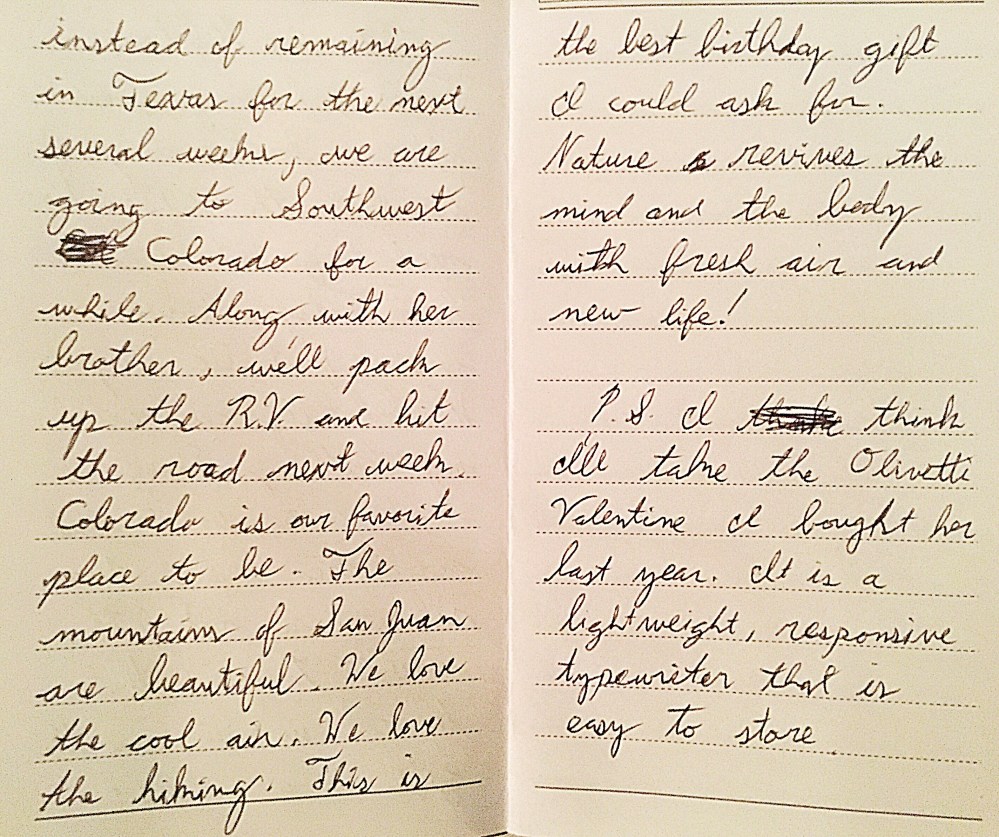 instead of remaining
in Texas for the next
several weeks, we are
going to Southwest
Colorado for a
while. Along with her
brother, we'll pack
up the R.V. and hit
the road next week.
Colorado is our favorite
place to be. The
mountains of San Juan
are beautiful. We love
the cool air. We love
the hiking. This is
the best birthday gift
I could ask for.
Nature revives the
mind and the body
with fresh air and
new life!
P.S. I think
I'll take the Olivetti
Valentine I bought her
last year. It is a
lightweight, responsive
typewriter that is
easy to store